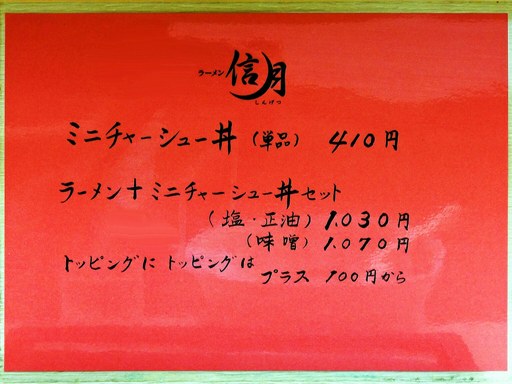 ラーメン 信月
しんげつ
ミニチャーシュー丼 (単品) 410円
ラーメン＋ミニチャーシュー丼セット
(塩・正油) 1.030円
(味噌) 1.070円
トッピングに トッピングは
プラス 100円から